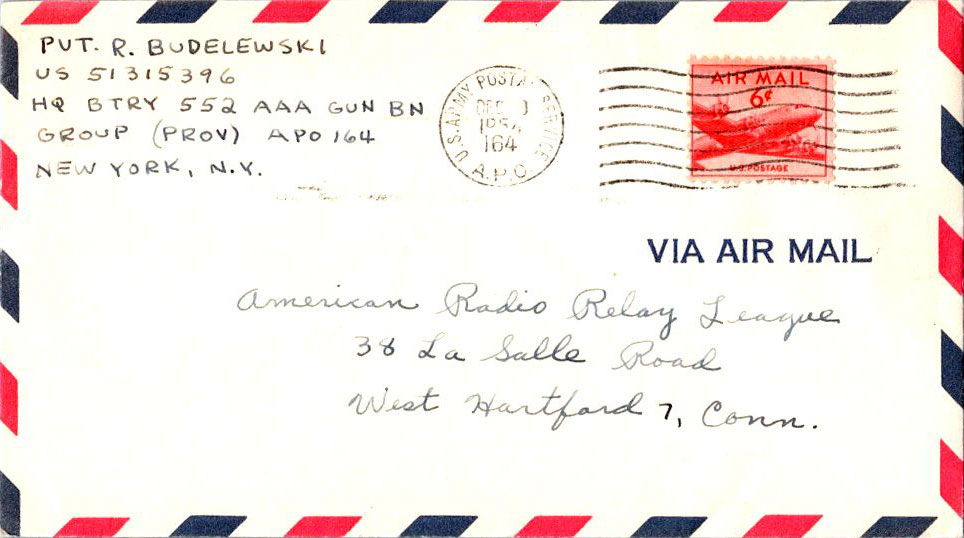 PVT. R. BUDELEWSKI
US 51315396
HQ BTRY 552 AAA GUN BN
GROUP (PROV) APO 164
NEW YORK, N.Y.
U.S. ARMY POSTAL SERVICE
DEC
1954
164
A.P.O.
AIR MAIL
6¢
U.S. POSTAGE
VIA AIR MAIL
American Radio Relay League
38 La Salle Road
West Hartford 7, Conn.